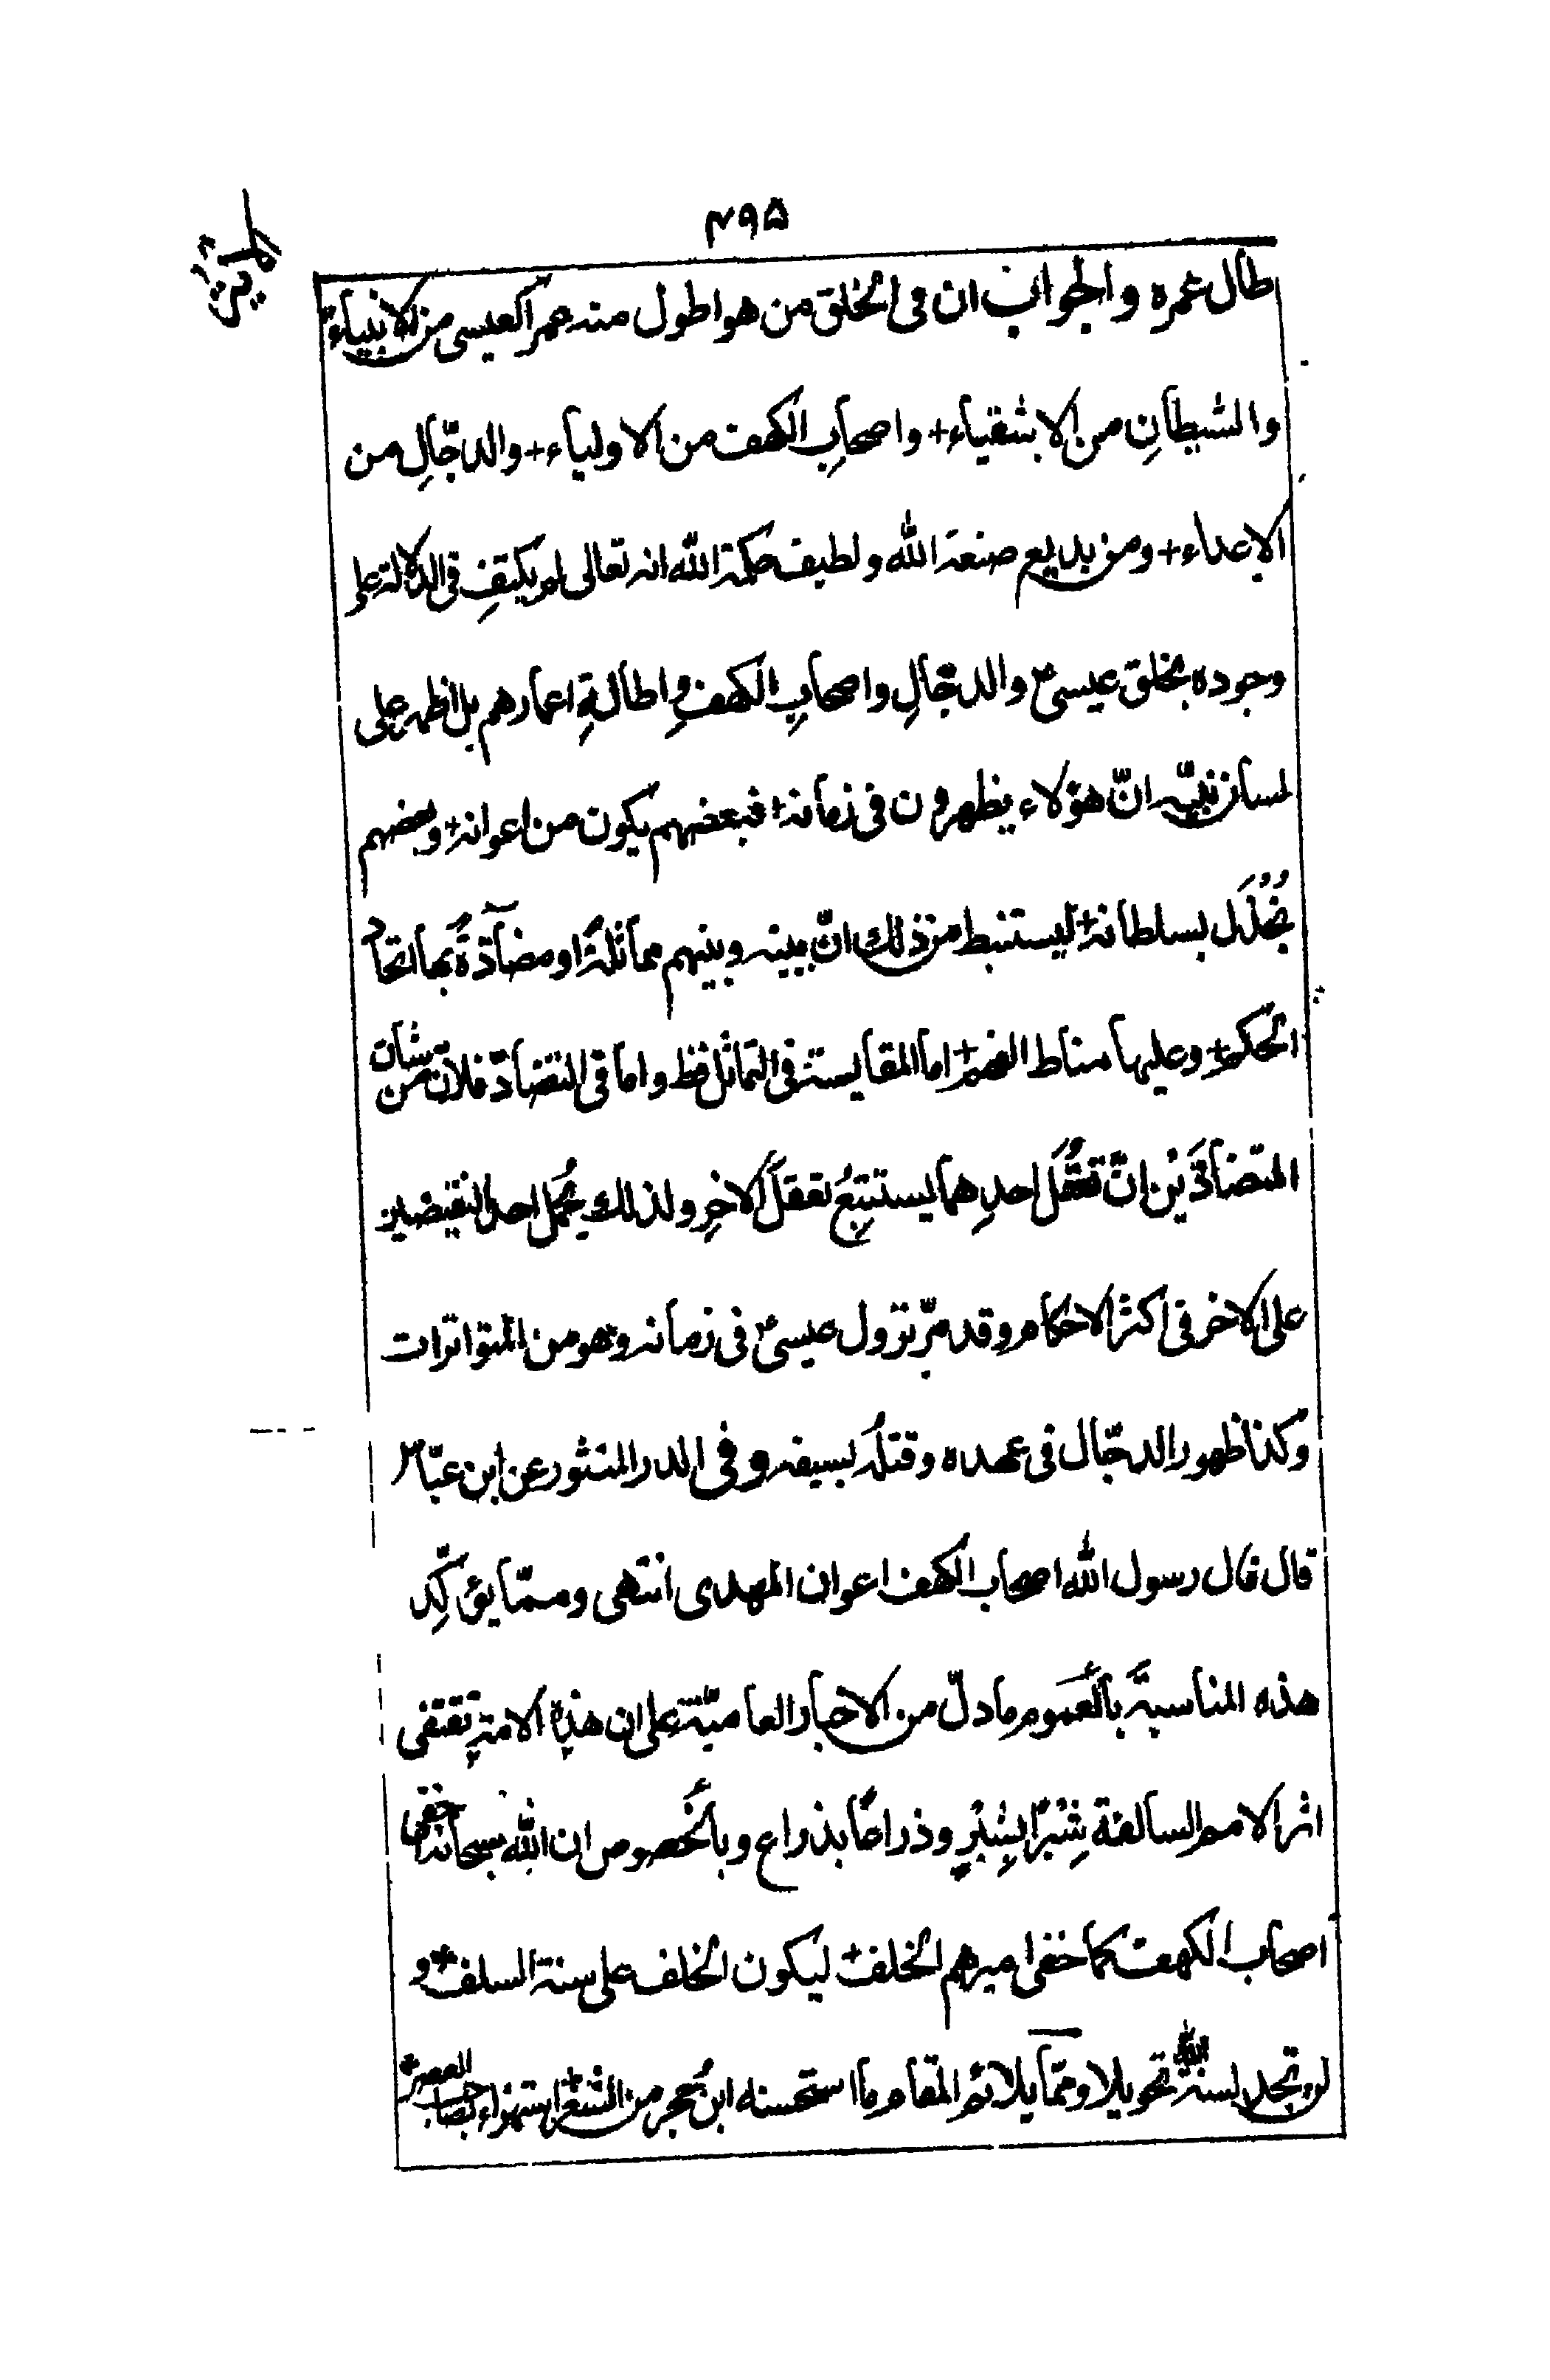 ۴۹۵
طال عمره والجواب ان فى الخلق من هو اطول منه عمرا كعيسى من الانبياء+
والشيطانِ من الاشقياء+ واصحابِ الكهف من الاولياء+ والدجّالِ من
الاعداء+ ومن بديع صنعة الله ولطيف حكمة الله انه تعالى لم يكتفِ فى الدلالة على
وجوده بخلق عيسىؑ والدجّالِ واصحابِ الكهفِ واطالةِ اعمارهم بل اظهر على
لسان نبيّه انّ هؤلاء يظهرون فى زمانه+ فبعضهم يكون من اعوانه+ وبعضهم
يُخْذَل بسلطانه+ ليستنبط من ذلك انّ بينه وبينهم مماثلةً او مضآدّةً بها اتحاد
الحكم+ وعليها مناط الفهم+ اما المقايسة فى التماثل فظ واما فى التضادّ فلان من شان
المتضادَّيْن انَّ تعقُّلَ احدِهما يستتبِعُ تعقلَ الاخرِ ولذلك يُحْمَل احد النقيضين
على الاخر فى اكثر الاحكام وقد مرّ نزول عيسىؑ فى زمانه وهو من المتواترات
وكذا ظهور الدجّال فى عهده وقتلُه بسيفه وفى الدر المنثور عن ابن عبّاس
قال قال رسول الله اصحاب الكهف اعوان المهدى انتهى وممّا يؤكِّد
هذه المناسبةَ بالعموم ما دلّ من الاخبار العاميّة على ان هذه الامة تقتفى
اثر الامم السالفة شِبْرًا بشِبْرٍ وذراعًا بذراع وبالخصوص ان الله سبحانه اخفى
اصحاب الكهف كما خفى اميرهم الخلف+ ليكون الخلف على سنة السلف+ و
لن تجد لسنة الله تحويلا وممّا يلائم المقام ما استحسنه ابنُ حجر من الشعر استهزاء بصاحب العصر+